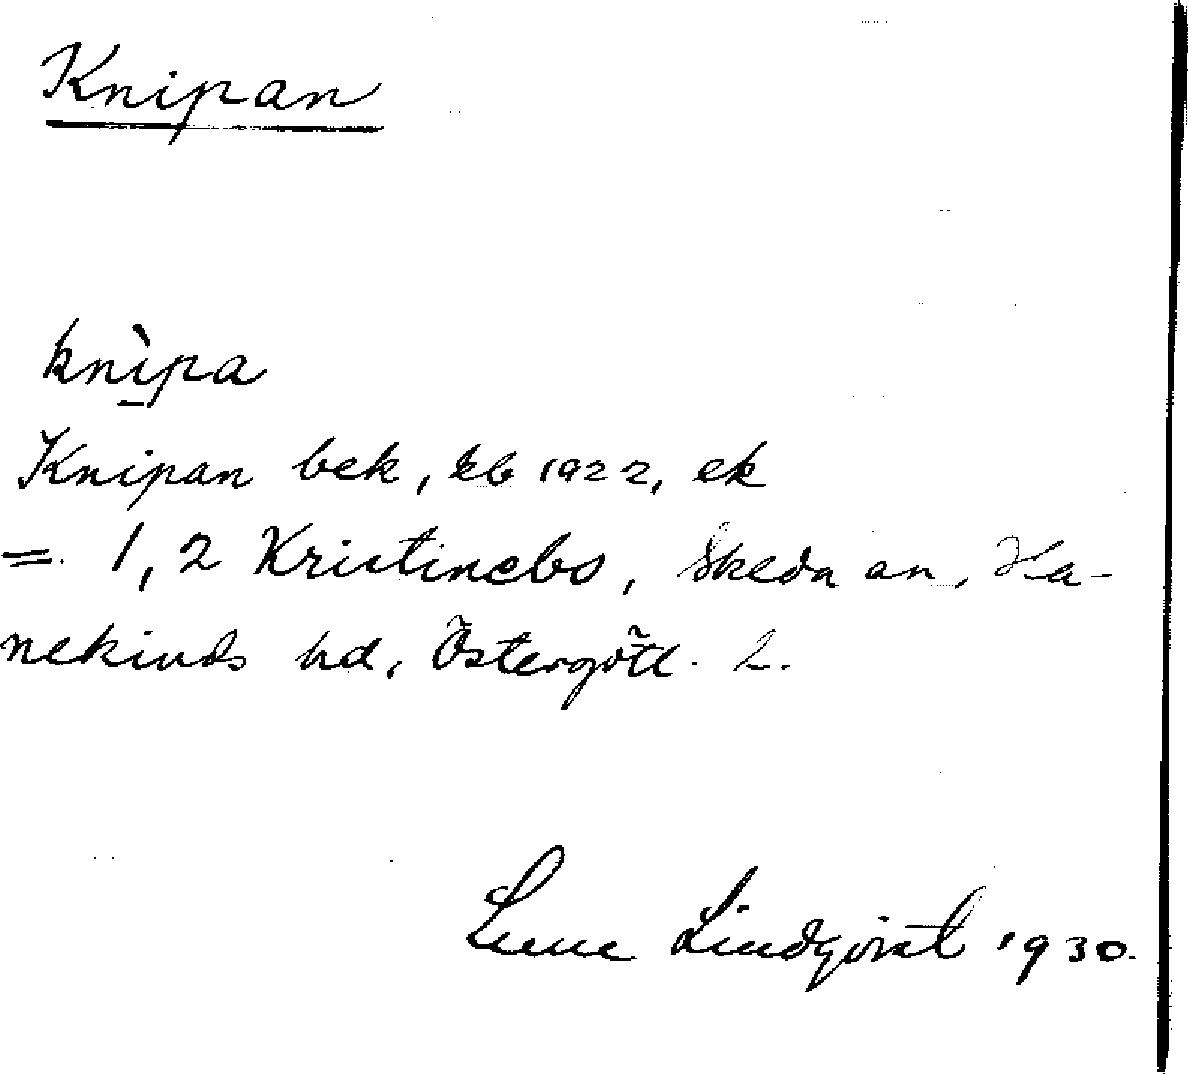 Knipan
knìpa
Knipan bek, kb 1922, ek
= 1,2 Kristinebo, Skeda sn, Ha-
nekinds hd, Östergötl. L.
Sune Lindqvist 1930.